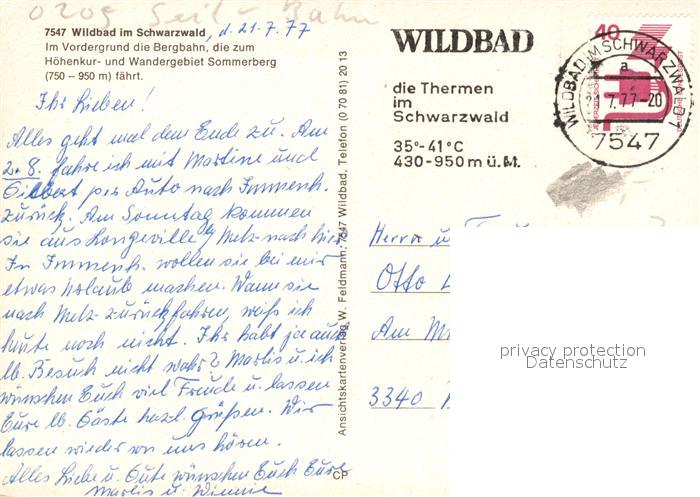 0205 Seil-Bahn
7547 Wildbad im Schwarzwald, d. 21.7.77
Im Vordergrund die Bergbahn, die zum
Höhenkur- und Wandergebiet Sommerberg
(750 – 950 m) fährt.
Ihr Lieben!
Alles geht mal dem Ende zu. Am
2.8. fahre ich mit Martine und
Gilbert per Auto nach Immenh.
zurück. Am Sonntag kommen
sie aus Longeville b/ Metz nach hier.
In Immenh. wollen sie bei mir
etwas Urlaub machen. Wann sie
nach Metz zurückfahren, weiß ich
heute noch nicht. Ihr habt ja auch
lb. Besuch nicht wahr? Marlis u. ich
wünschen Euch viel Freude u. lassen
Eure lb. Gäste herzl. Grüßen. Wir
lassen wieder von uns hören.
Alles Liebe u. Gute wünschen Euch Eure
Marlis u.
Ansichtskartenverlag W. Feldmann, 7547 Wildbad, Telefon (0 70 81) 20 13
CP
WILDBAD
die Thermen
im
Schwarzwald
35°-41°C
430-950 m ü.M.
40
WILDBAD IM SCHWARZWALD 1
a
21.7.77-20
7547
Herrn u.
Otto
Am
3340
privacy protection
Datenschutz